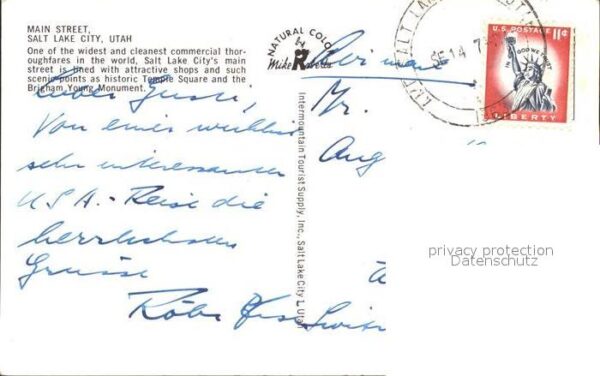 MAIN STREET,
SALT LAKE CITY, UTAH
One of the widest and cleanest commercial thor-
oughfares in the world, Salt Lake City's main
street is lined with attractive shops and such
scenic points as historic Temple Square and the
Brigham Young Monument.
NATURAL COLOR
by
Mike Roberts
Intermountain Tourist Supply, Inc., Salt Lake City 1, Utah
SALT LAKE
U.S. POSTAGE 11¢
IN GOD WE TRUST
LIBERTY
Von einer
sehr interessanten
U.S.A.-Reise die
herrlichsten
Grüsse
Mr.
Aug
privacy protection
Datenschutz